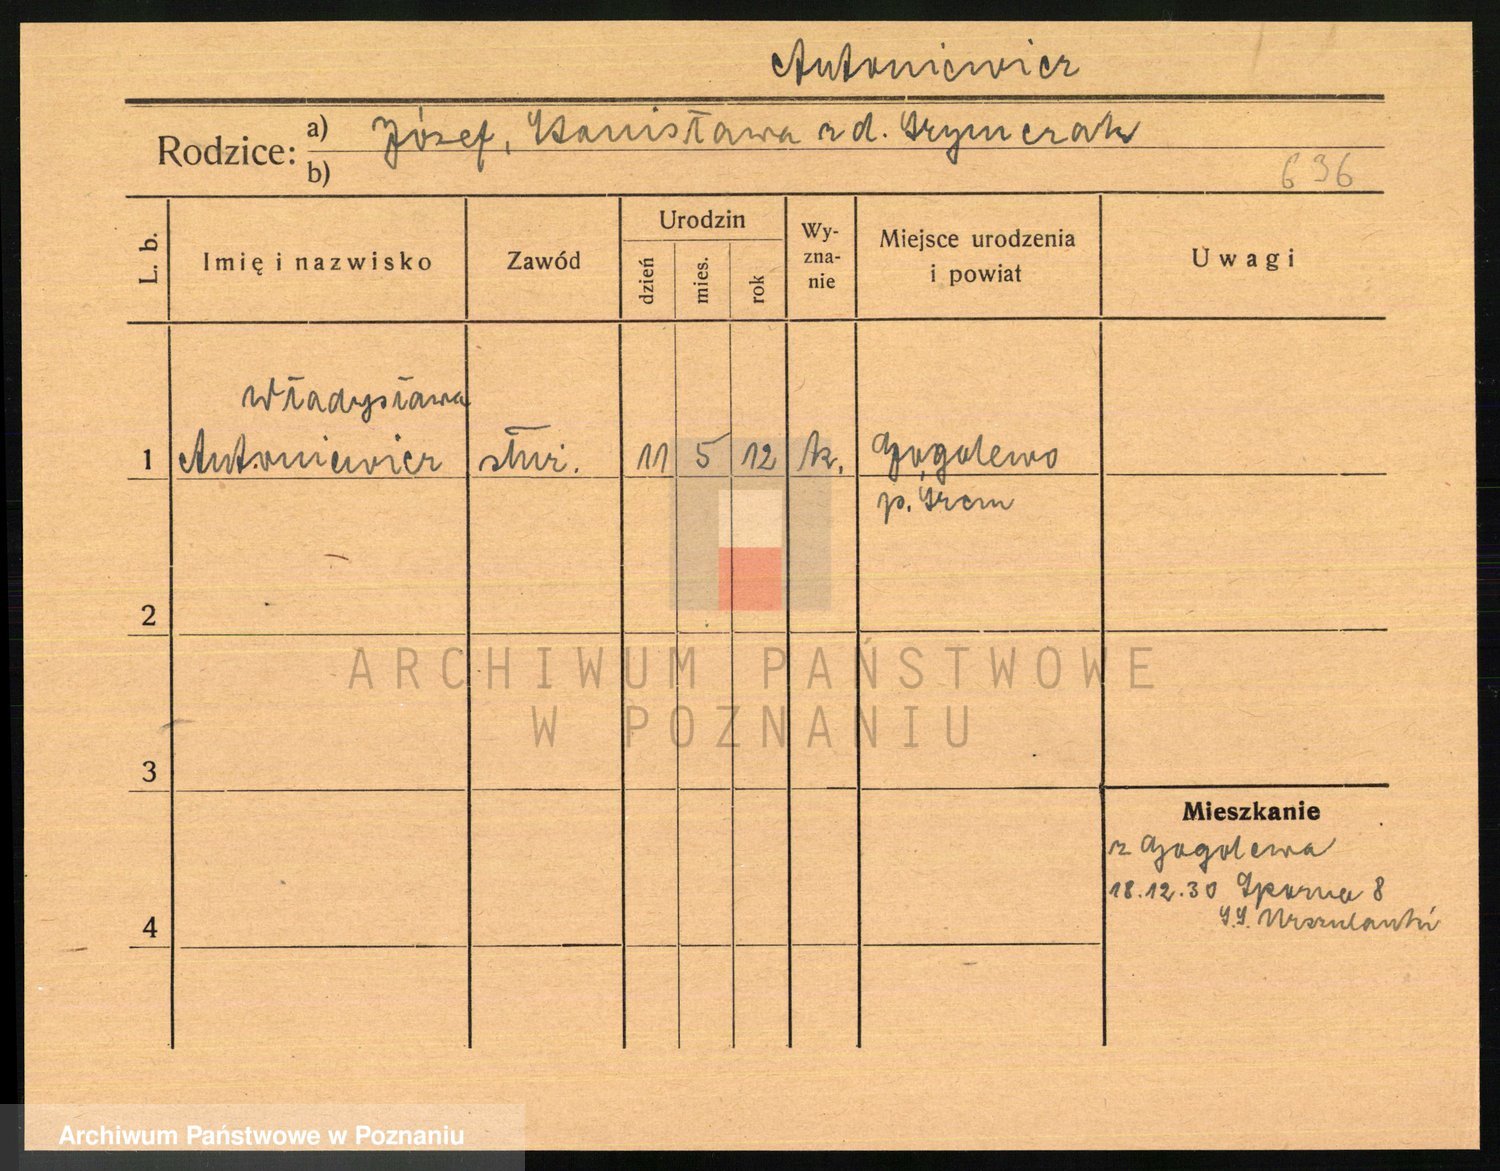 Antoniewicz
Rodzice: a) Józef, Stanisława z d. Szymczak
b)
636
L. b. Imię i nazwisko Zawód Urodzin dzień mies. rok Wy-zna-nie Miejsce urodzenia i powiat Uwagi
Władysława
1 Antoniewicz służ. 11 5 12 k. Gogolewo
p. Śrem
2
ARCHIWUM PAŃSTWOWE
W POZNANIU
3
Mieszkanie
z Gogolewa
18.12.30 Sporna 8
S.S. Urszulanki
4
Archiwum Państwowe w Poznaniu